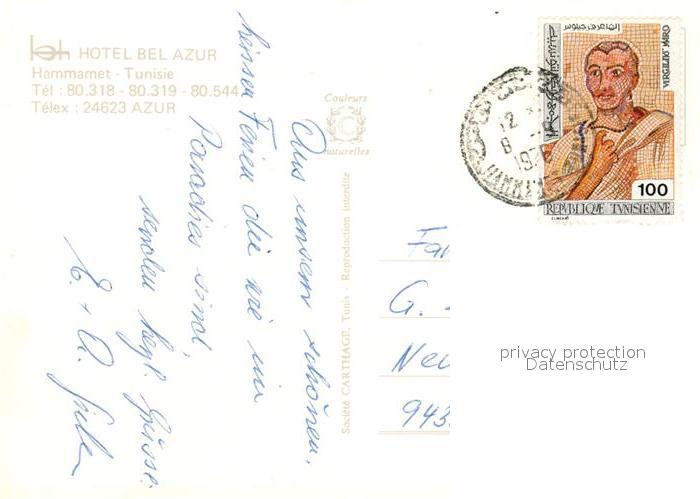 bah HOTEL BEL AZUR
Hammamet - Tunisie
Tél : 80.318 - 80.319 - 80.544
Télex : 24623 AZUR
Couleurs
naturelles
Société CARTHAGE, Tunis - Reproduction interdite
Aus unsern schönen,
heissen Ferien die wie im
Paradies sind,
senden herzl. Grüsse
E. + A.
VIRGILIO MARO
100
REPUBLIQUE TUNISIENNE
12
8
197
Fa
G.
Neu
943
privacy protection
Datenschutz